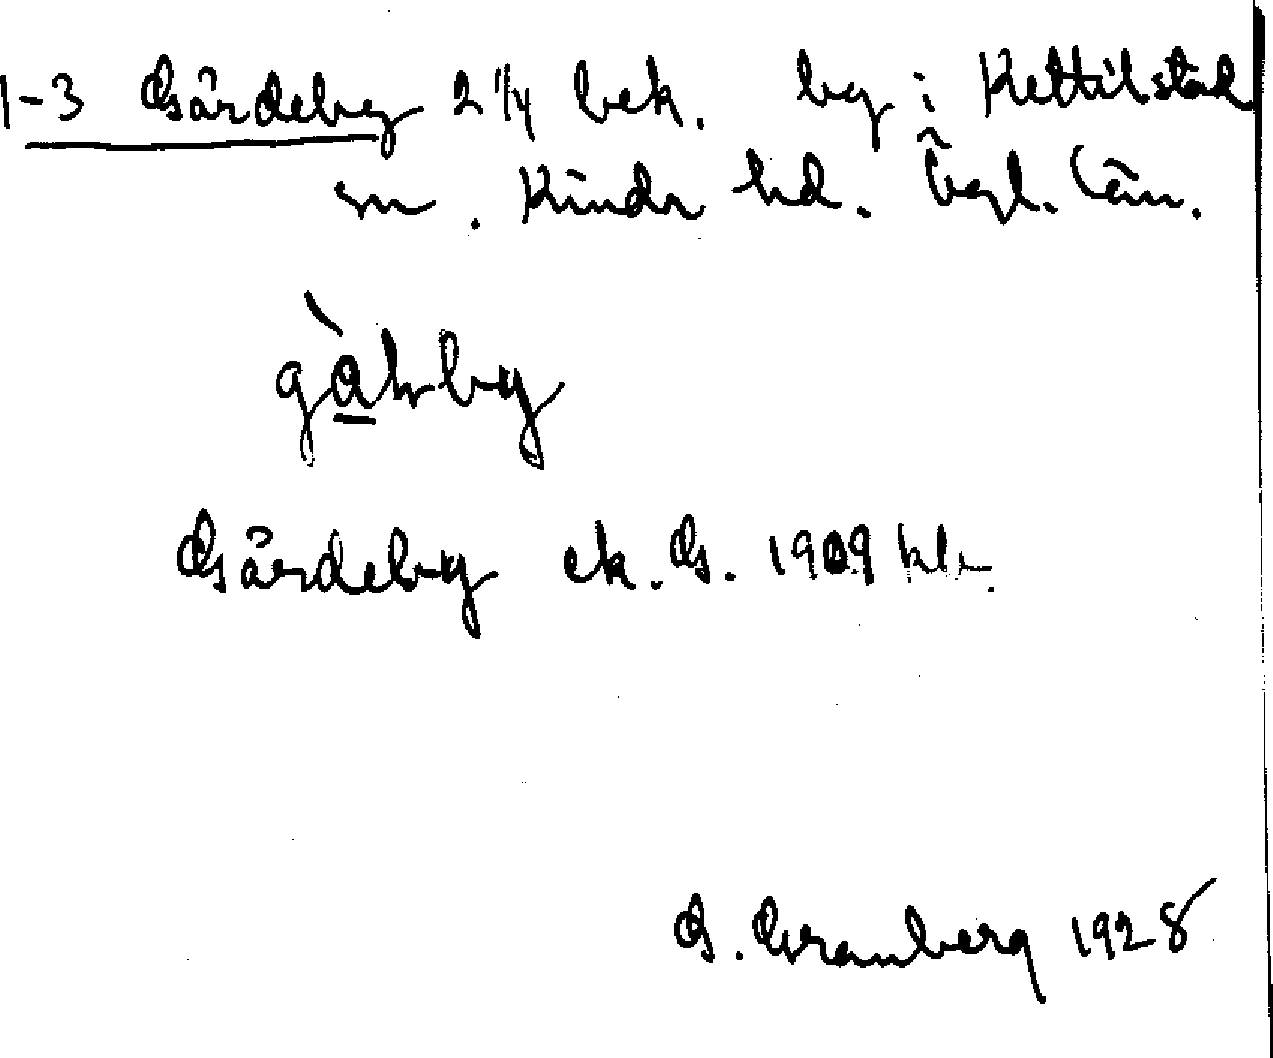 1-3 Gärdeby 2 1/4 bek. by i Kettilstad
sn. Kinda hd. Ögl. län.
Gärdeby ek. G. 1909 klr.
G. Granberg 1928